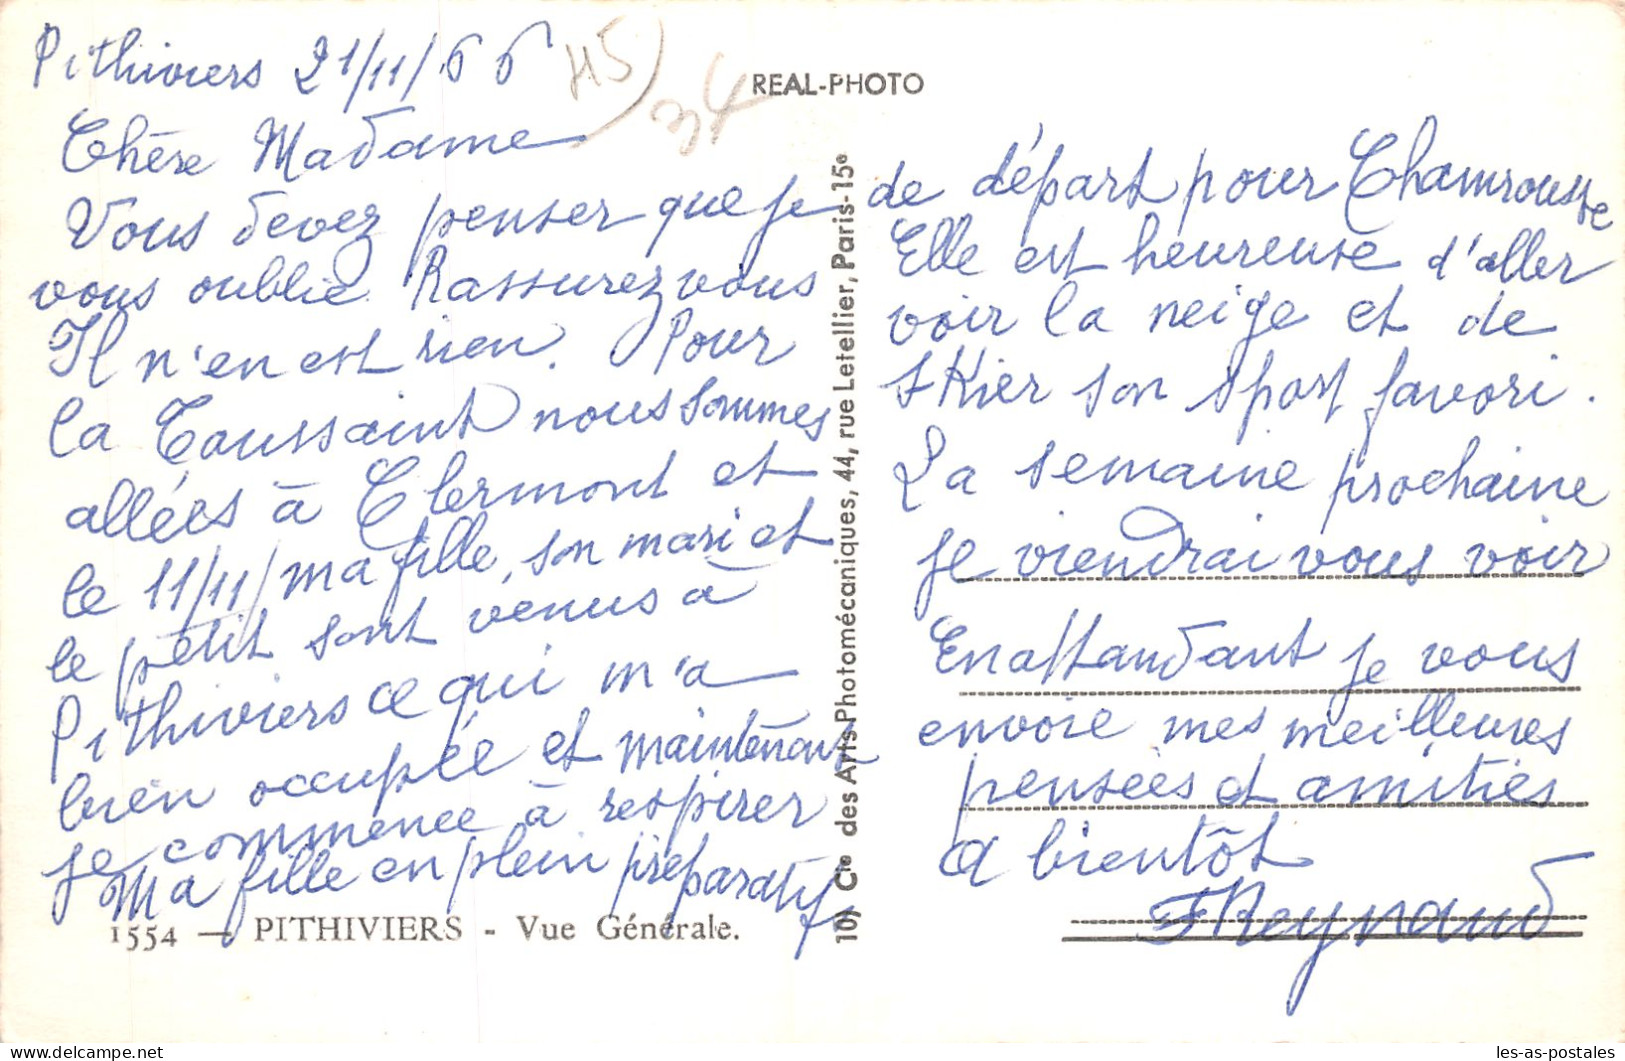 Pithiviers 21/11/66
45
34
REAL-PHOTO
Chère Madame
Vous devez penser que je
vous oublie Rassurez vous
Il n'en est rien. Pour
la Toussaint nous sommes
allées à Clermont et
le 11/11/ ma fille, son mari et
le petit sont venus à
Pithiviers ce qui m'a
bien occupée et maintenant
je commence à respirer
Ma fille en plein préparatif
1554 — PITHIVIERS - Vue Générale.
10) Cie des Arts Photomécaniques, 44, rue Letellier, Paris-15e
de départ pour Chamrousse
Elle est heureuse d'aller
voir la neige et de
skier son sport favori.
La semaine prochaine
je viendrai vous voir
En attandant je vous
envoie mes meilleures
pensées et amitiés
a bientôt
F Reynaud
les-as-postales
delcampe.net